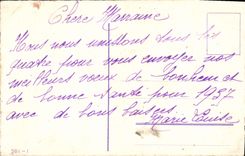 Chere Marraine
Nous nous unissons tous les
quatre pour vous envoyer nos
meilleurs voeux de bonheur et
de bonne santé pour 1937
avec de bons baisers
Marie Louise